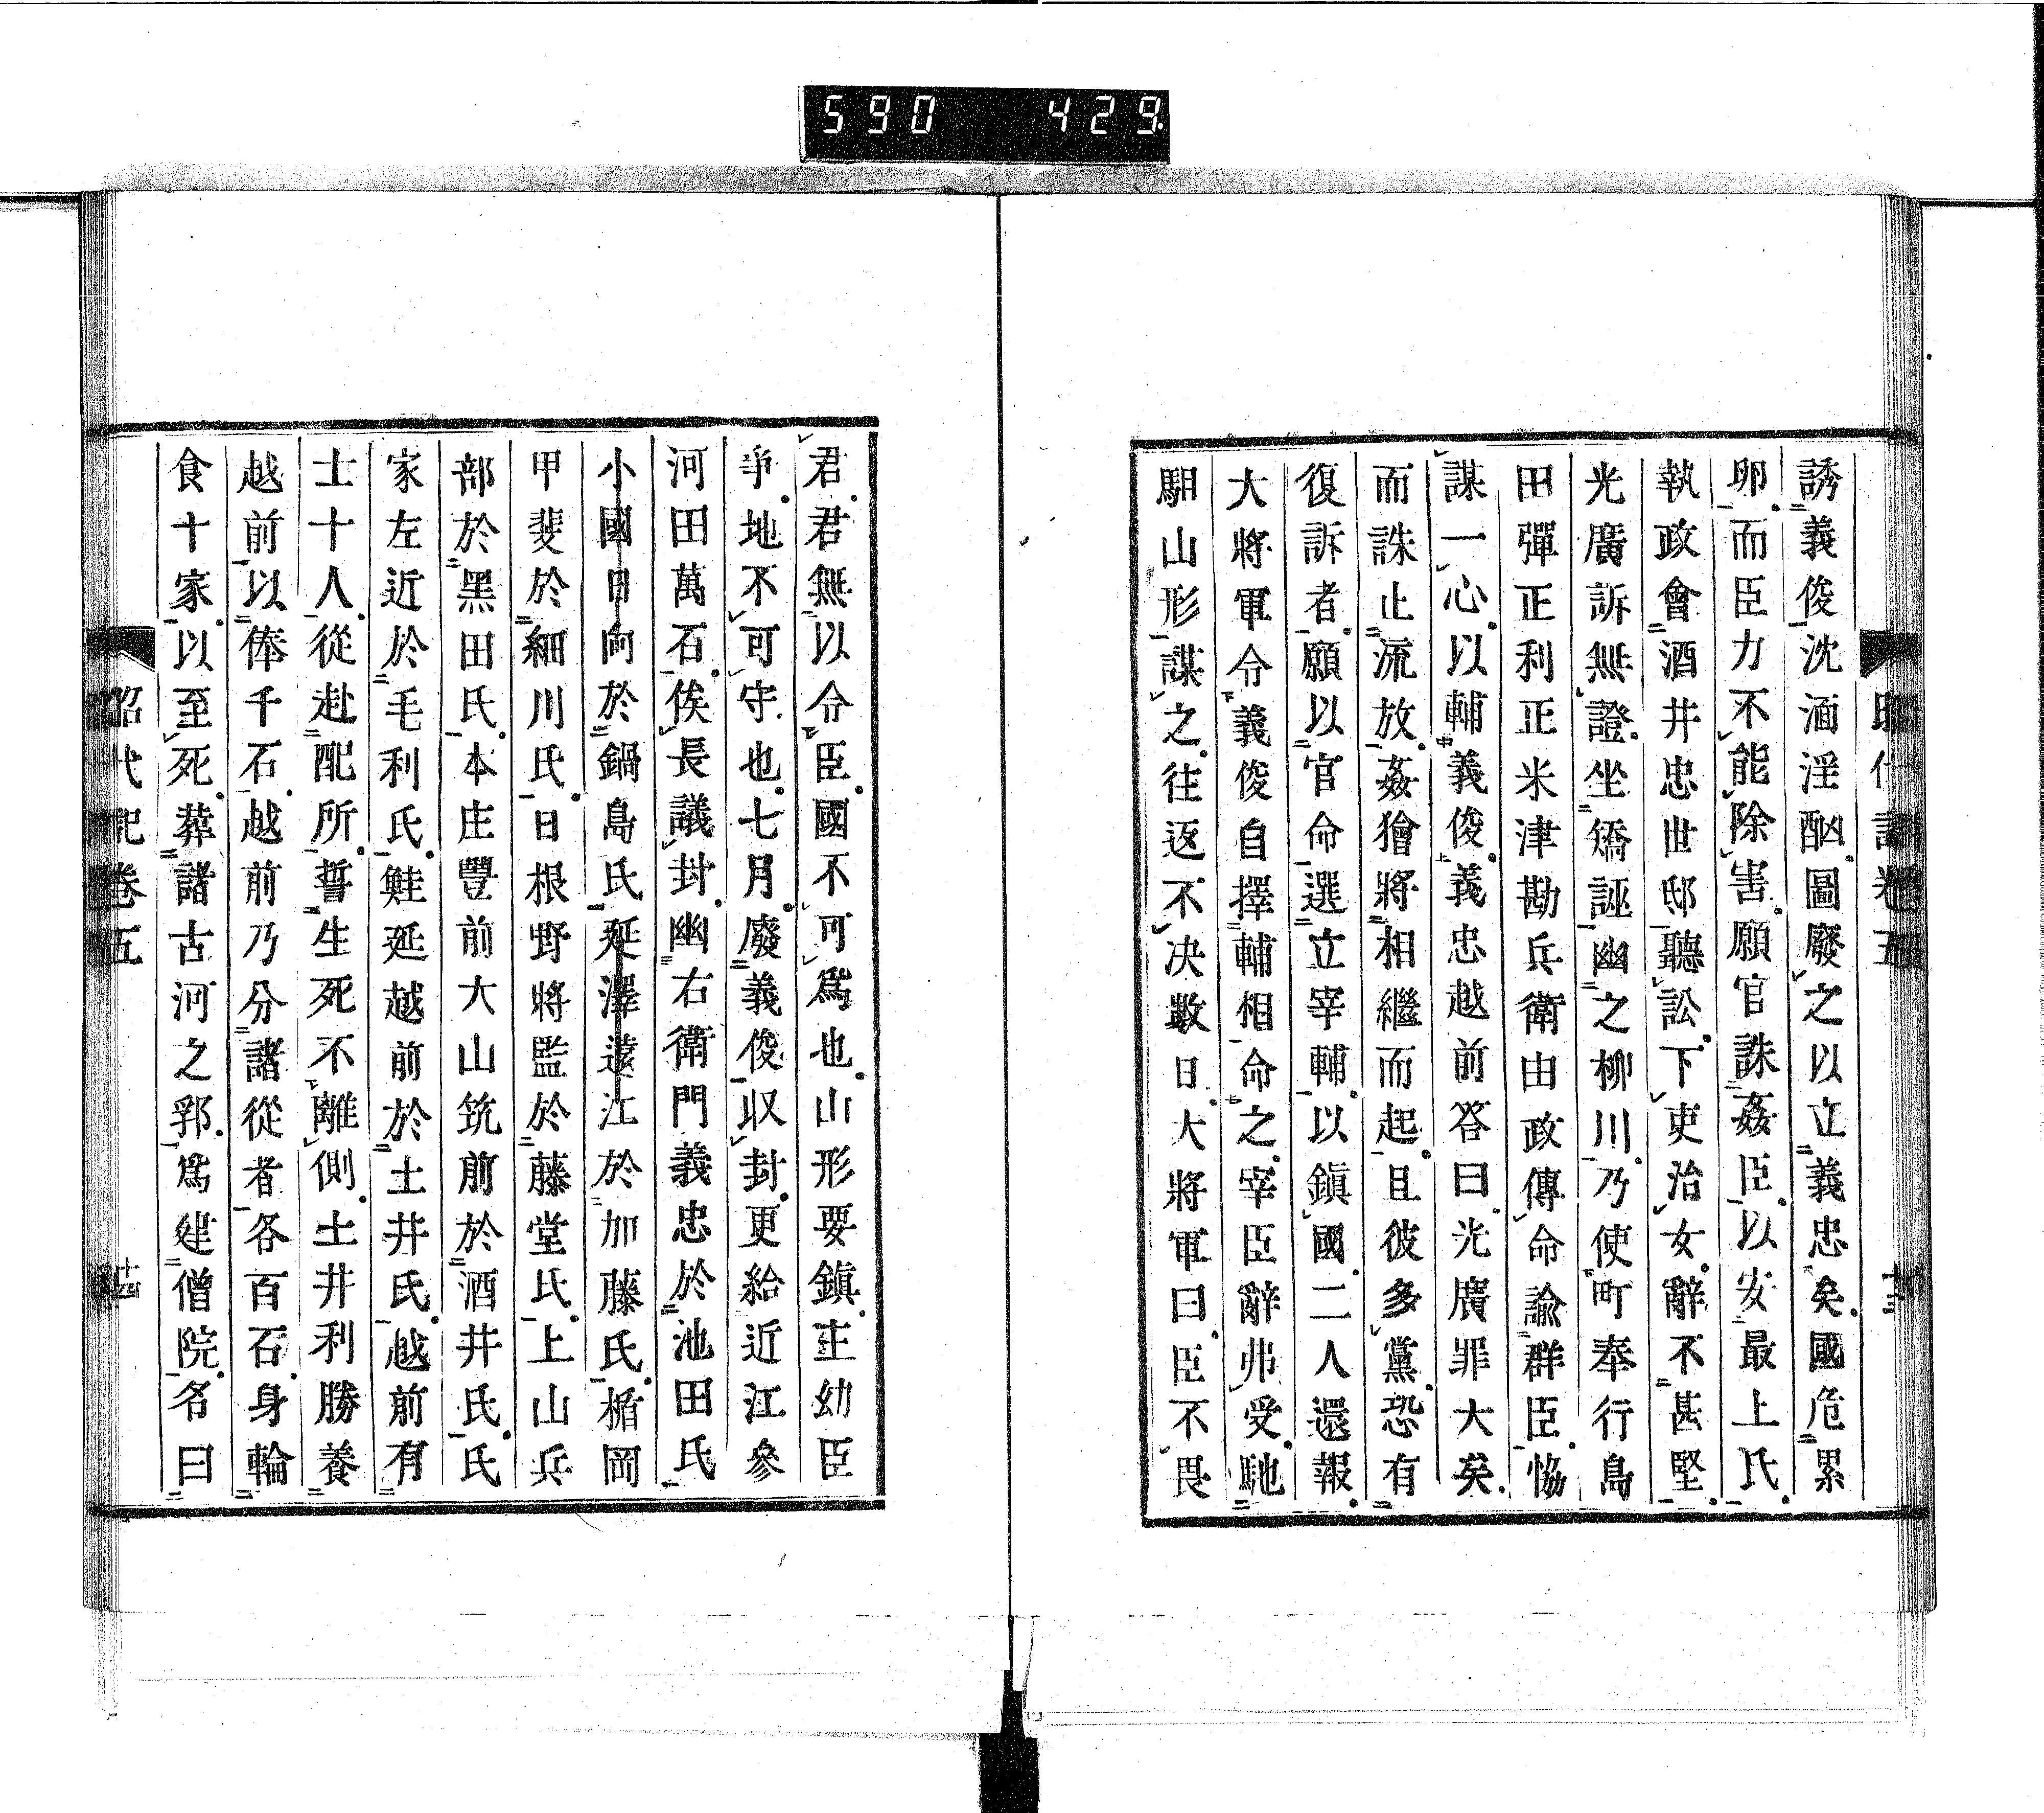 590 429
昭代記卷五 十三
誘義俊沈湎淫酗圖廢之以立義忠矣國危累
卵而臣力不能除害願官誅姦臣以安最上氏
執政會酒井忠世邸聽訟下吏治女辭不甚堅
光廣訴無證坐矯誣幽之柳川乃使町奉行島
田彈正利正米津勘兵衛由政傳命諭群臣恊
謀一心以輔義俊義忠越前答曰光廣罪大矣
而誅止流放姦獪將相繼而起且彼多黨恐有
復訴者願以官命選立宰輔以鎮國二人還報
大將軍令義俊自擇輔相命之宰臣辭弗受馳
駬山形謀之往返不決數日大將軍曰臣不畏
君君無以令臣國不可爲也山形要鎮主幼臣
爭地不可守也七月廢義俊收封更給近江參
河田萬石俟長議封幽右衛門義忠於池田氏
小國日向於鍋島氏延澤遠江於加藤氏楯岡
甲斐於細川氏日根野將監於藤堂氏上山兵
部於黑田氏本庄豐前大山筑前於酒井氏氏
家左近於毛利氏鮭延越前於土井氏越前有
士十人從赴配所誓生死不離側土井利勝養
越前以俸千石越前乃分諸從者各百石身輪
食十家以至死葬諸古河之郭爲建僧院名曰
昭代記卷五 十四